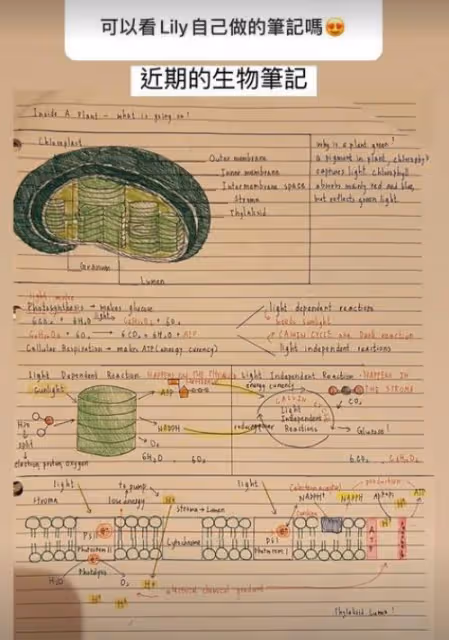 可以看Lily自己做的筆記嗎😍
近期的生物筆記
Inside A Plant - what is going on!
Chloroplast
Outer membrane
Inner membrane
Intermembrane space
Stroma
Thylakoid
Granum
Lumen
Why is a plant green?
a pigment in plant,
captures light chlorophyll
absorbs mainly red and blue,
but reflects green light.
Photosynthesis → makes glucose
6CO₂ + 6H₂O light→ C₆H₁₂O₆ + 6O₂
C₆H₁₂O₆ + 6O₂ → 6CO₂ + 6H₂O + ATP
Cellular Respiration → makes ATP (energy currency)
light dependent reactions
needs sunlight
CALVIN CYCLE aka Dark reaction
light independent reactions
Light Dependent Reaction HAPPENS ON THE
sunlight
H₂O
split
electron, proton, oxygen
ATP
NADPH
O₂
6H₂O
6O₂
Light Independent Reaction - HAPPENS IN
THE STROMA
energy currency
CO₂
CALVIN CYCLE
Light
Independent
Reactions
Glucose!
6CO₂
C₆H₁₂O₆
light
Stroma
to pump
lose energy
H+
Stroma → Lumen
PSII
e⁻
Photosystem II
Photolysis
H₂O
O₂
H+
H+
H+
Cytochrome
light
PSI
e⁻
Photosystem I
(electron acceptor)
NADP+
NADPH
production
H+
ATP
electrical chemical gradient
Thylakoid Lumen!